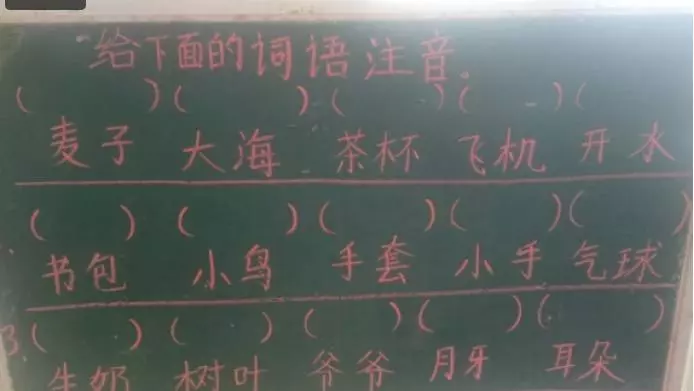 给下面的词语注音。
( ) ( ) ( ) ( ) (
麦子 大海 茶杯 飞机 开水
( ) ( ) ( ) ( ) ( )
书包 小鸟 手套 小手 气球
3. ( ) ( ) ( ) ( ) ( )
牛奶 树叶 爷爷 月牙 耳朵